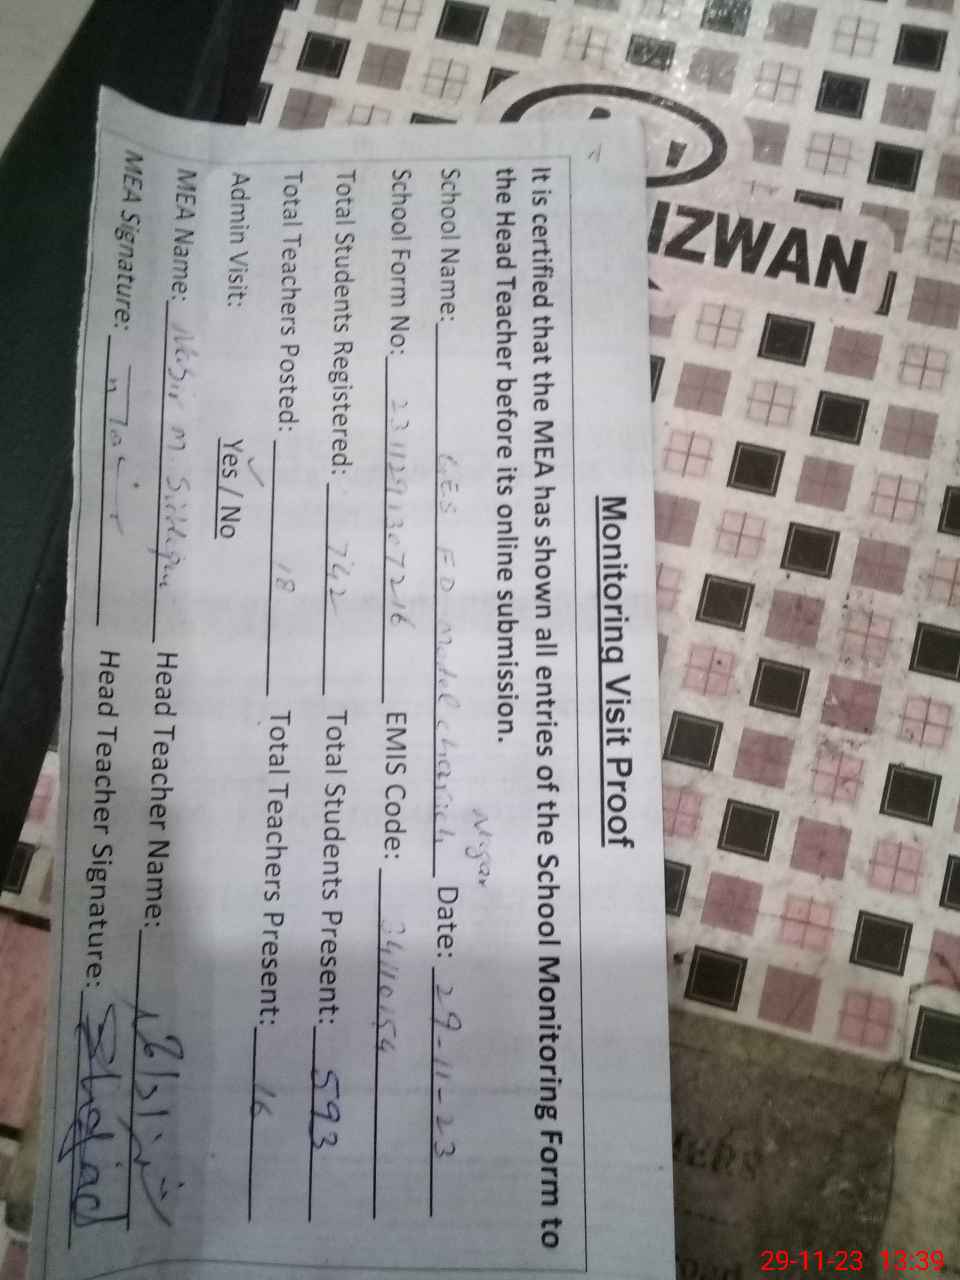 IZWAN
Monitoring Visit Proof
It is certified that the MEA has shown all entries of the School Monitoring Form to
the Head Teacher before its online submission.
Nigar
School Name: GES FD Model charich Date: 29-11-23
School Form No: 2311291307216 EMIS Code: 34110154
Total Students Registered: 742 Total Students Present: 593
Total Teachers Posted: 18 Total Teachers Present: 16
Admin Visit: Yes / No
MEA Name: Nasir M. Head Teacher Name:
MEA Signature: Head Teacher Signature:
29-11-23 13:39